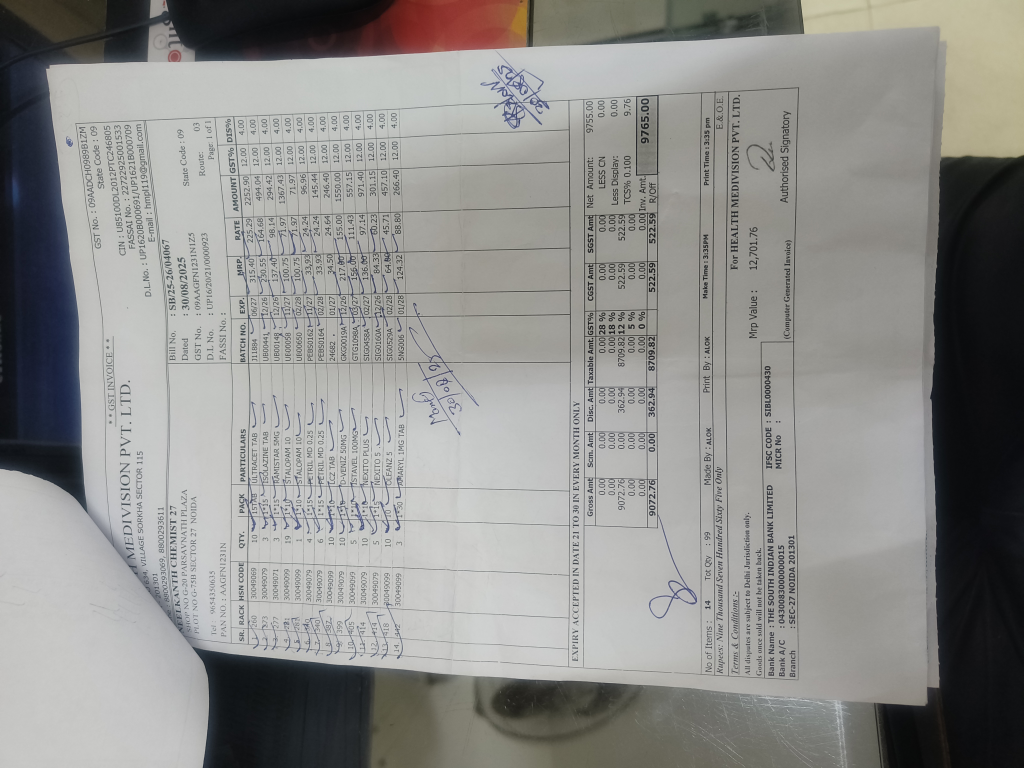 ** GST INVOICE **
GST No. : 09AADCH0989B1ZM
State Code : 09
MEDIVISION PVT. LTD.
CIN : U85100DL2012PTC246805
VILLAGE SORKHA SECTOR 115
FASSAI No. : 22722925001533
D.L.No. : UP1620B000691/UP1621B000709
8800293069, 8800293611
E-mail : hmpl119@gmail.com
CHEMIST 27
Bill No. : SB/25-26/04067
SHOP NO G-201 PARSAVNATH PLAZA
Dated : 30/08/2025 State Code : 09
PLOT NO G-75H SECTOR 27 NOIDA
GST No. : 09AAGFN1231N1Z5 Route: 03
Tel : 9654350635
D.L No. : UP16/20/21/0000923 Page: 1 of 1
PAN NO. : AAGFN1231N
FASSI No. :
SR. RACK HSN CODE QTY. PACK PARTICULARS BATCH NO. EXP. MRP RATE AMOUNT GST% DIS%
30049069 10 15TAB ULTRACET TAB 06/27 225.29 2252.90 12.00 4.00
30049071 3 1*15 ISOLAZINE TAB 12/26 230.55 164.68 494.04 12.00 4.00
30049071 3 1*15 RAMISTAR 5MG 12/26 137.40 98.14 294.42 12.00 4.00
30049099 19 1*10 STALOPAM 10 11/27 100.75 71.97 1367.43 12.00 4.00
30049099 1 1*10 STALOPAM 10 02/28 100.75 71.97 71.97 12.00 4.00
30049079 4 1*15 PETRIL MD 0.25 11/27 33.93 24.24 96.96 12.00 4.00
30049079 6 1*15 PETRIL MD 0.25 02/28 33.93 24.24 145.44 12.00 4.00
30049099 10 LCZ TAB 01/27 34.50 24.64 246.40 12.00 4.00
399 30049079 10 D-VENIZ 50MG GKG0019A 12/26 155.00 1550.00 12.00 4.00
30049099 5 ISTAVEL 100MG 03/27 156.00 111.43 557.15 12.00 4.00
414 30049079 10 NEXITO PLUS SIG0458A 02/27 136.00 97.14 971.40 12.00 4.00
30049079 5 NEXITO 5 11/26 84.33 60.23 301.15 12.00 4.00
418 30049099 10 OLEANZ 5 02/28 45.71 457.10 12.00 4.00
14 442 30049099 3 1*30 AMARYL 1MG TAB 5NG006 01/28 124.32 88.80 266.40 12.00 4.00
30/08/25
EXPIRY ACCEPTED IN DATE 21 TO 30 IN EVERY MONTH ONLY
Gross Amt Scm. Amt Disc. Amt Taxable Amt. GST% CGST Amt SGST Amt Net Amount: 9755.00
0.00 0.00 0.00 0.00 28 % 0.00 0.00 LESS CN 0.00
0.00 0.00 0.00 0.00 18 % 0.00 0.00 Less Display: 0.00
9072.76 0.00 362.94 8709.82 12 % 522.59 522.59 TCS% 0.100 9.76
0.00 0.00 0.00 0.00 5 % 0.00 0.00
0.00 0.00 0.00 0.00 0 % 0.00 0.00 Inv. Amt. 9765.00
9072.76 0.00 362.94 8709.82 522.59 522.59 R/Off
No of Items : 14 Tot Qty : 99 Made By : ALOK Print By : ALOK Make Time : 3:35PM Print Time : 3:35 pm
Rupees: Nine Thousand Seven Hundred Sixty Five Only E.& O.E.
Terms & Conditions :-
For HEALTH MEDIVISION PVT. LTD.
All disputes are subject to Delhi Jurisdiction only.
Goods once sold will not be taken back.
Mrp Value : 12,701.76
Bank Name : THE SOUTH INDIAN BANK LIMITED IFSC CODE : SIBL0000430
Bank A/C : 0430083000000015 MICR No :
Authorised Signatory
Branch : SEC-27 NOIDA 201301
(Computer Generated Invoice)